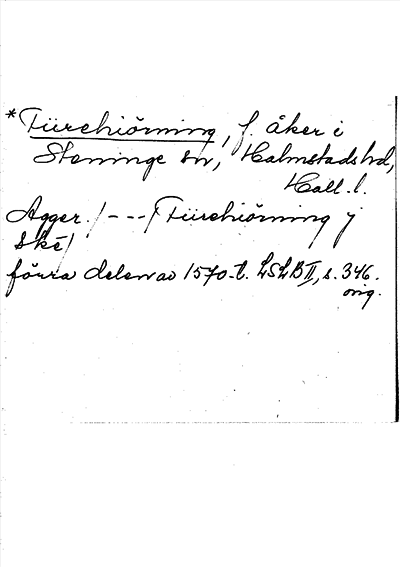 *Tiirehiörning, f. åker i
Steninge sn, Halmstads hd,
Hall. l.
Agger /---/ Tiirehiörning j
Ské/
förra delen av 1570-t. LSLB II, s. 346.
orig.